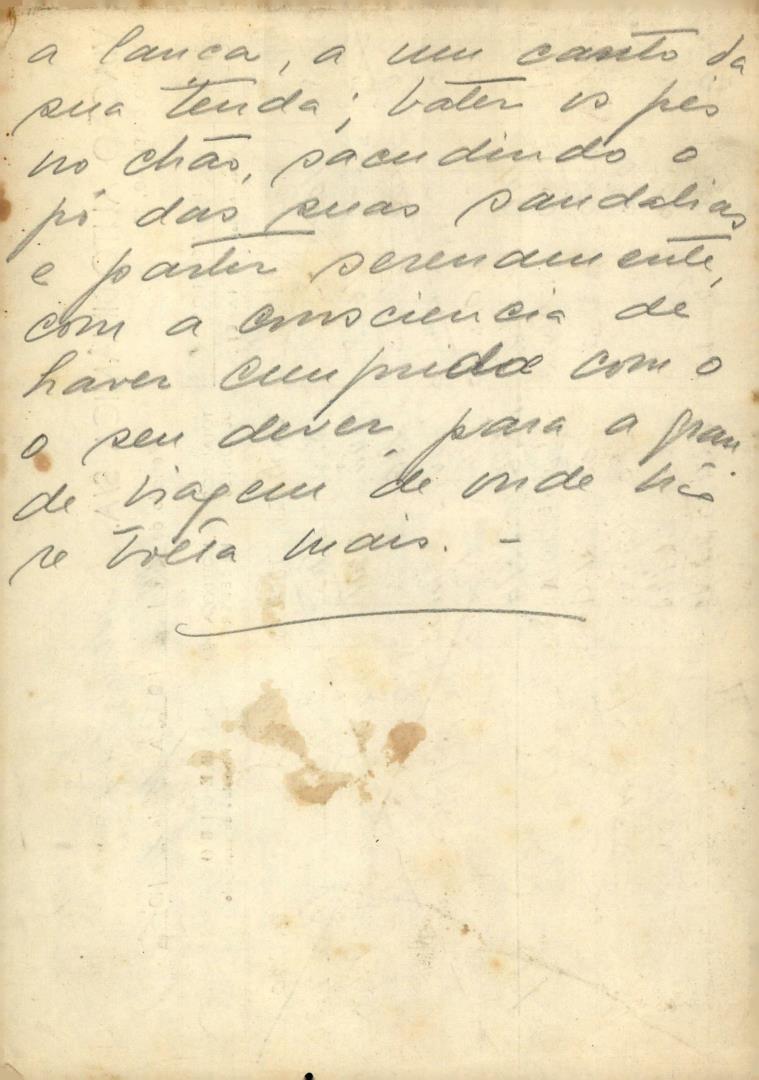 a lanca, a um canto da
sua tenda; bater os pés
no chão, sacudindo o
pó das suas sandalias
e partir serenamente,
com a consciencia de
haver cumprido com o
o seu dever, para a gran
de viagem de onde não
se volta mais. -